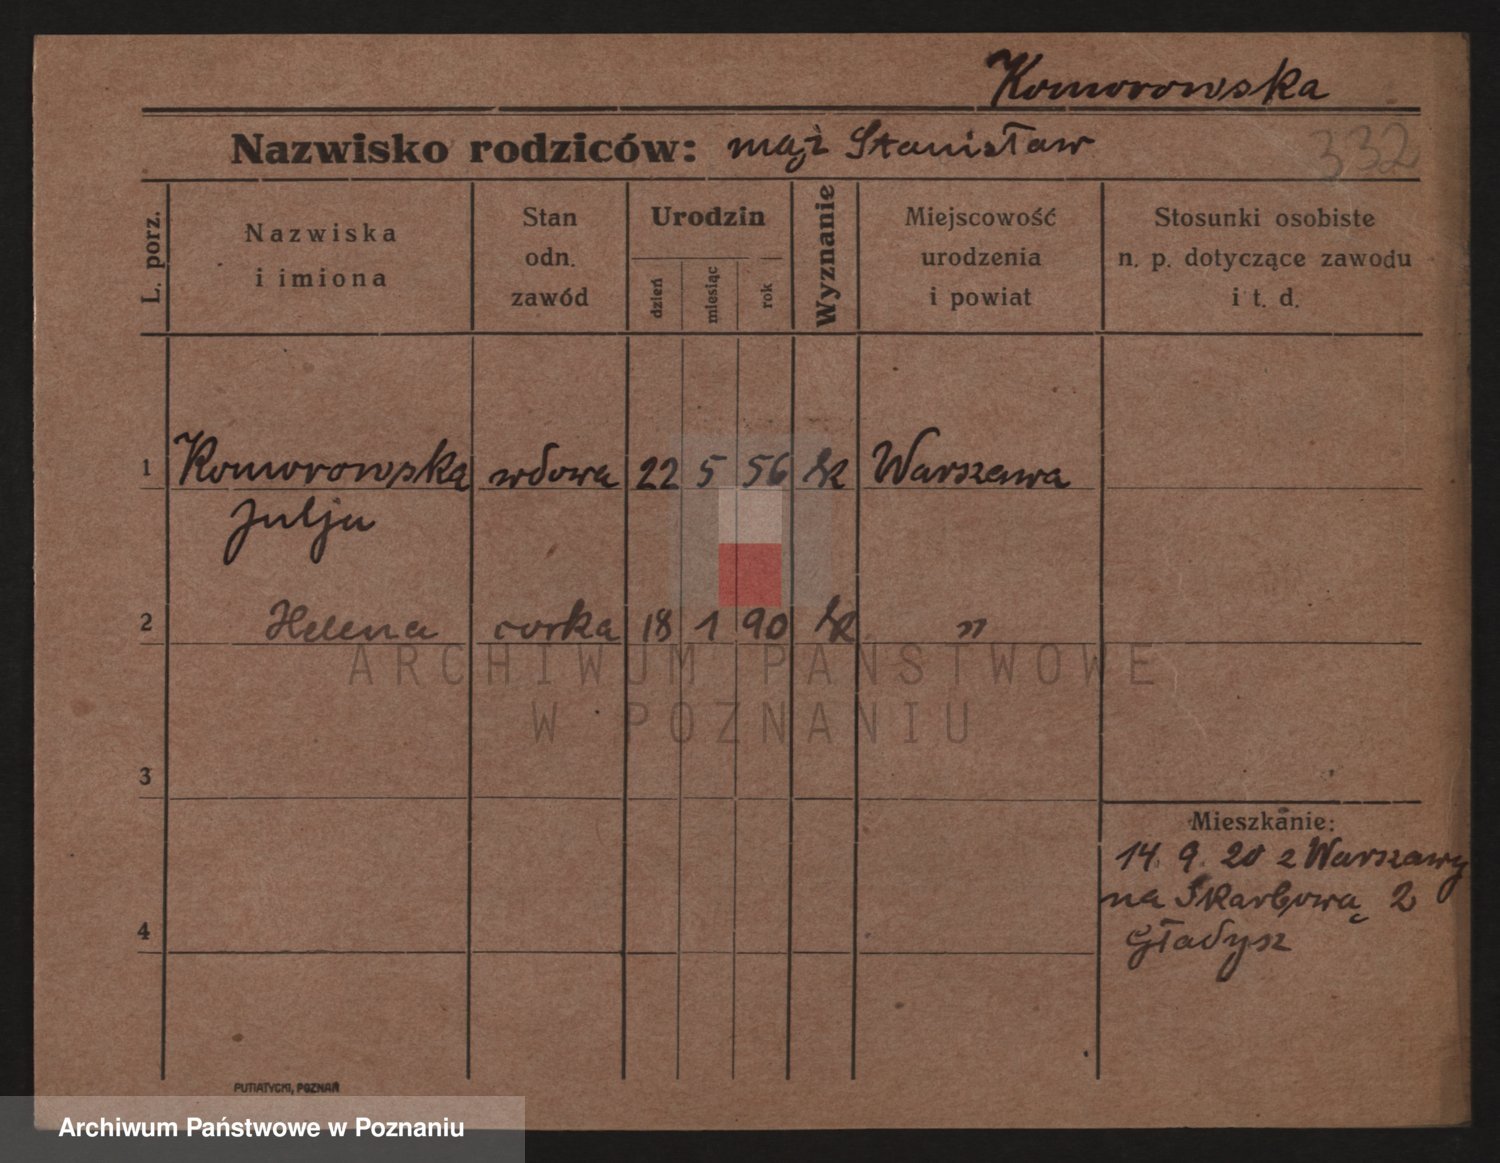 Komorowska
Nazwisko rodziców: mąż Stanisław
332
L. porz.
Nazwiska
i imiona
Stan
odn.
zawód
Urodzin
dzień
miesiąc
rok
Wyznanie
Miejscowość
urodzenia
i powiat
Stosunki osobiste
n. p. dotyczące zawodu
i t. d.
1 Komorowska wdowa 22 5 56 rk Warszawa
Julja
2 Helena corka 18 1 90 rk "
ARCHIWUM PAŃSTWOWE
W POZNANIU
3
Mieszkanie:
14. 9. 20 z Warszawy
na Skarbową 2
Gładysz
4
PUTIATYCKI, POZNAŃ
Archiwum Państwowe w Poznaniu